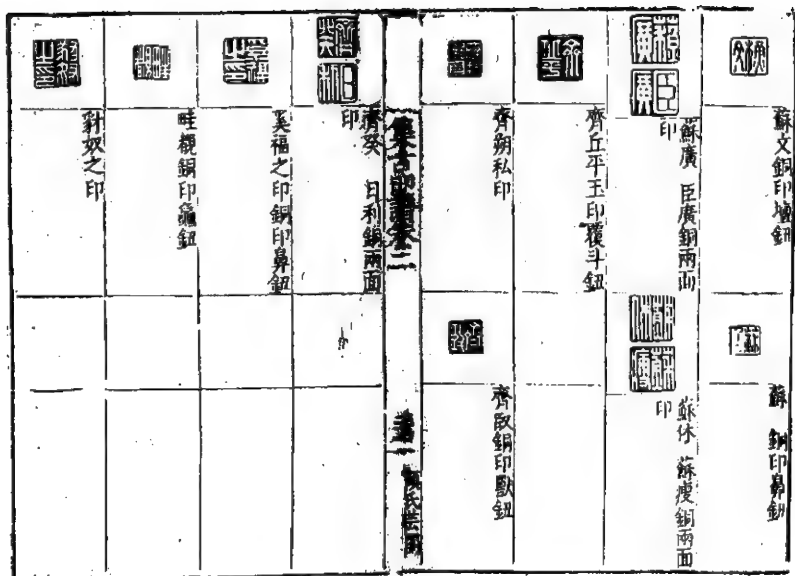 蘇文銅印壇鈕
蘇 銅印鼻鈕
蘇廣 臣廣銅兩面
印
蘇休 蘇瘦銅兩面
印
齊丘平玉印覆斗鈕
齊朔私印
齊臤銅印獸鈕
集古印譜卷二
顧氏芸閣
齊癸 日利銅兩面
印
奚福之印銅印鼻鈕
眭觀銅印龜鈕
豻奴之印